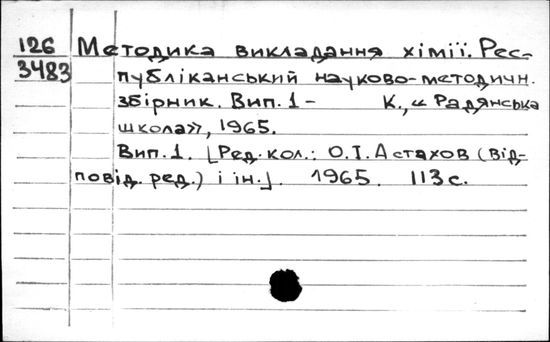 126 Методика викладання хімії. Рес-
3483 публіканський науково-методичн.
збірник. Вип. 1- К., „Радянська
школа", 1965.
Вип. 1. [Ред. кол.: О.І. Астахов (від-
повід. ред.) і ін.]. 1965. 113 с.